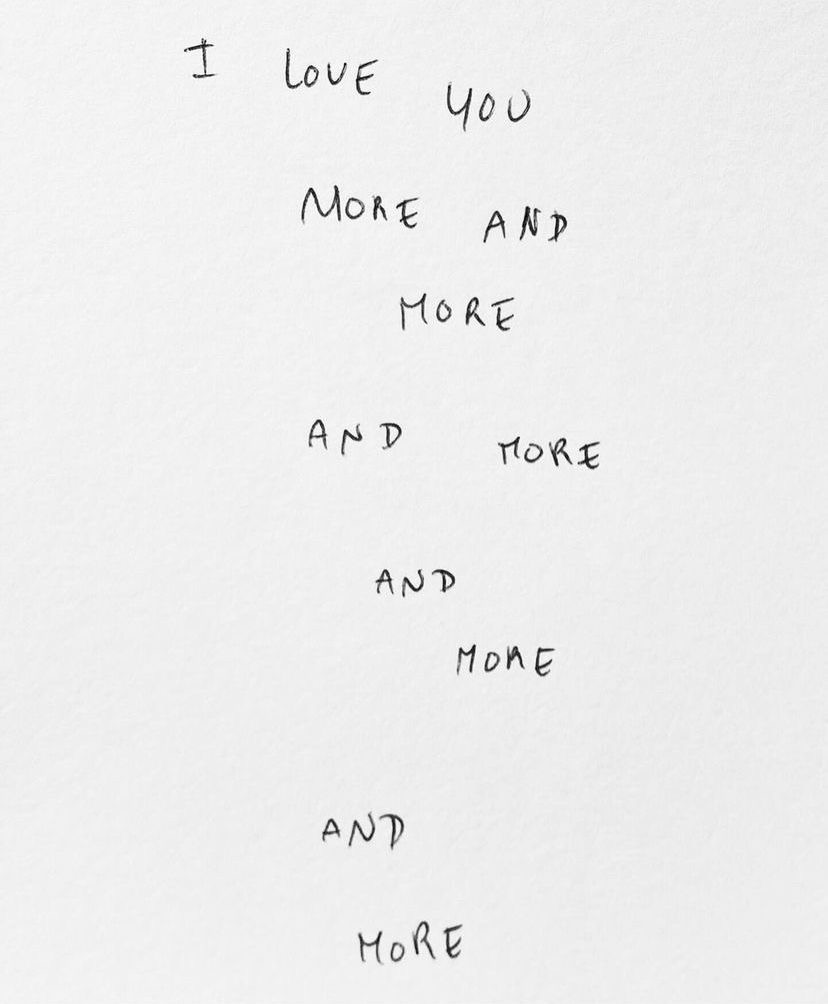 I LOVE YOU
MORE AND
MORE
AND MORE
AND
MORE
AND
MORE